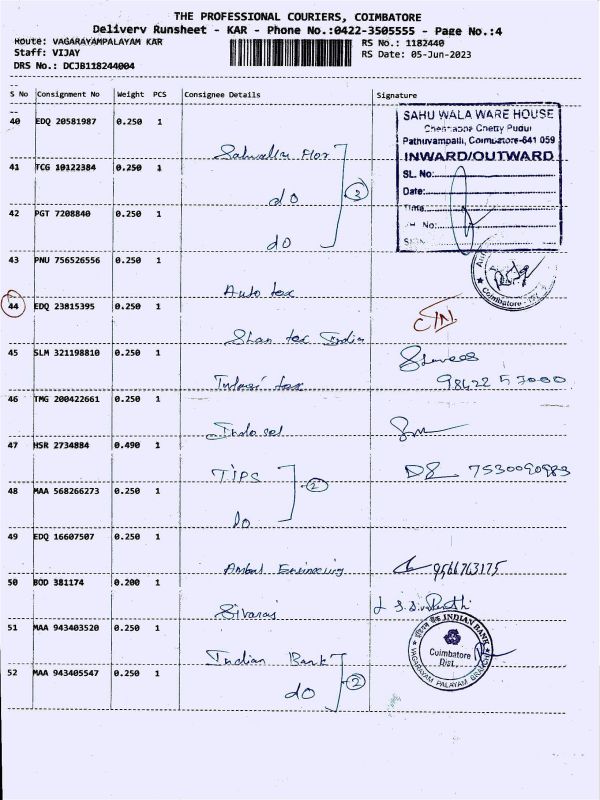 THE PROFESSIONAL COURIERS, COIMBATORE
Delivery Runsheet - KAR - Phone No.:0422-3505555 - Page No.:4
Route: VAGARAYAMPALAYAM KAR
RS No.: 1182440
Staff: VIJAY
RS Date: 05-Jun-2023
DRS No.: DCJB118244004
S No Consignment No Weight PCS Consignee Details Signature
40 EDQ 20581987 0.250 1
SAHU WALA WARE HOUSE
Chettappa Chetty Pudur
Pathuvampalli, Coimbatore-641 059
INWARD/OUTWARD
SL. No:
Date:
Time
No:
41 TCG 10122384 0.250 1
do
3
42 PGT 7208840 0.250 1
do
43 PNU 756526556 0.250 1
Auto tex
Coimbatore
44 EDQ 23815395 0.250 1
Shan tex India
45 SLM 321198810 0.250 1
Tulasi tex
98422 57000
46 TMG 200422661 0.250 1
Indo sel
47 HSR 2734884 0.490 1
TIPS
2
7530090983
48 MAA 568266273 0.250 1
do
49 EDQ 16607507 0.250 1
Ambal Engineering
9566763175
50 BOD 381174 0.200 1
Sivaraj
51 MAA 943403520 0.250 1
Indian Bank
INDIAN BANK
Coimbatore
Dist.
VAGARAYAM PALAYAM BRANCH
52 MAA 943405547 0.250 1
do
2